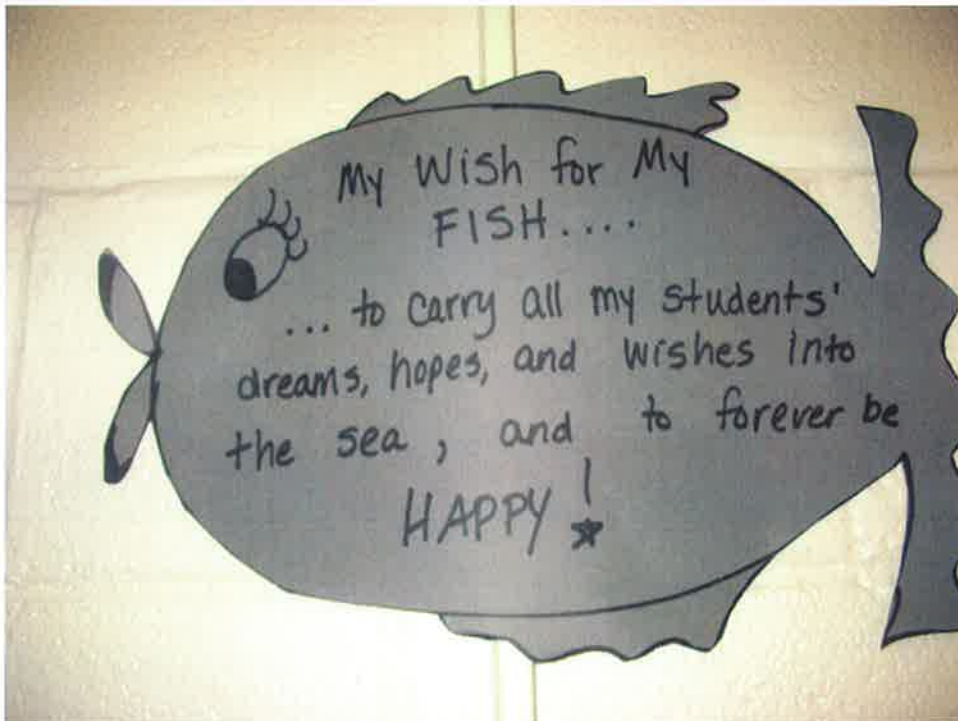 My Wish for My
FISH....
... to carry all my students'
dreams, hopes, and wishes into
the sea, and to forever be
HAPPY!